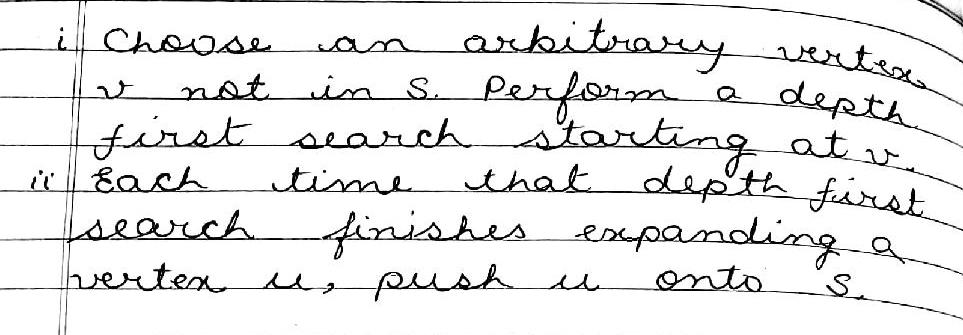 i Choose an arbitrary vertex
v not in S. Perform a depth
first search starting at v.
ii Each time that depth first
search finishes expanding a
vertex u, push u onto S.